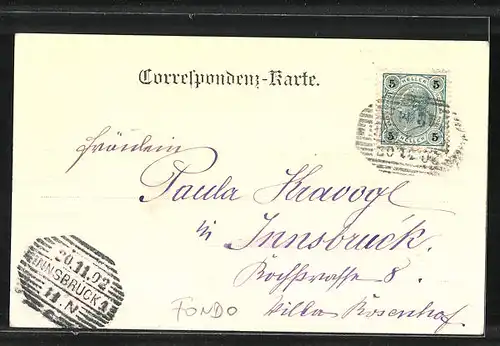 Correspondenz-Karte.
5 HELLER 5
5 HELLER 5
20.11.02
Fräulein
Paula Kravogl
in Innsbruck
Kochstrasse 8.
Villa Rosenhof.
20.11.02
INNSBRUCK 1
11.N
FONDO